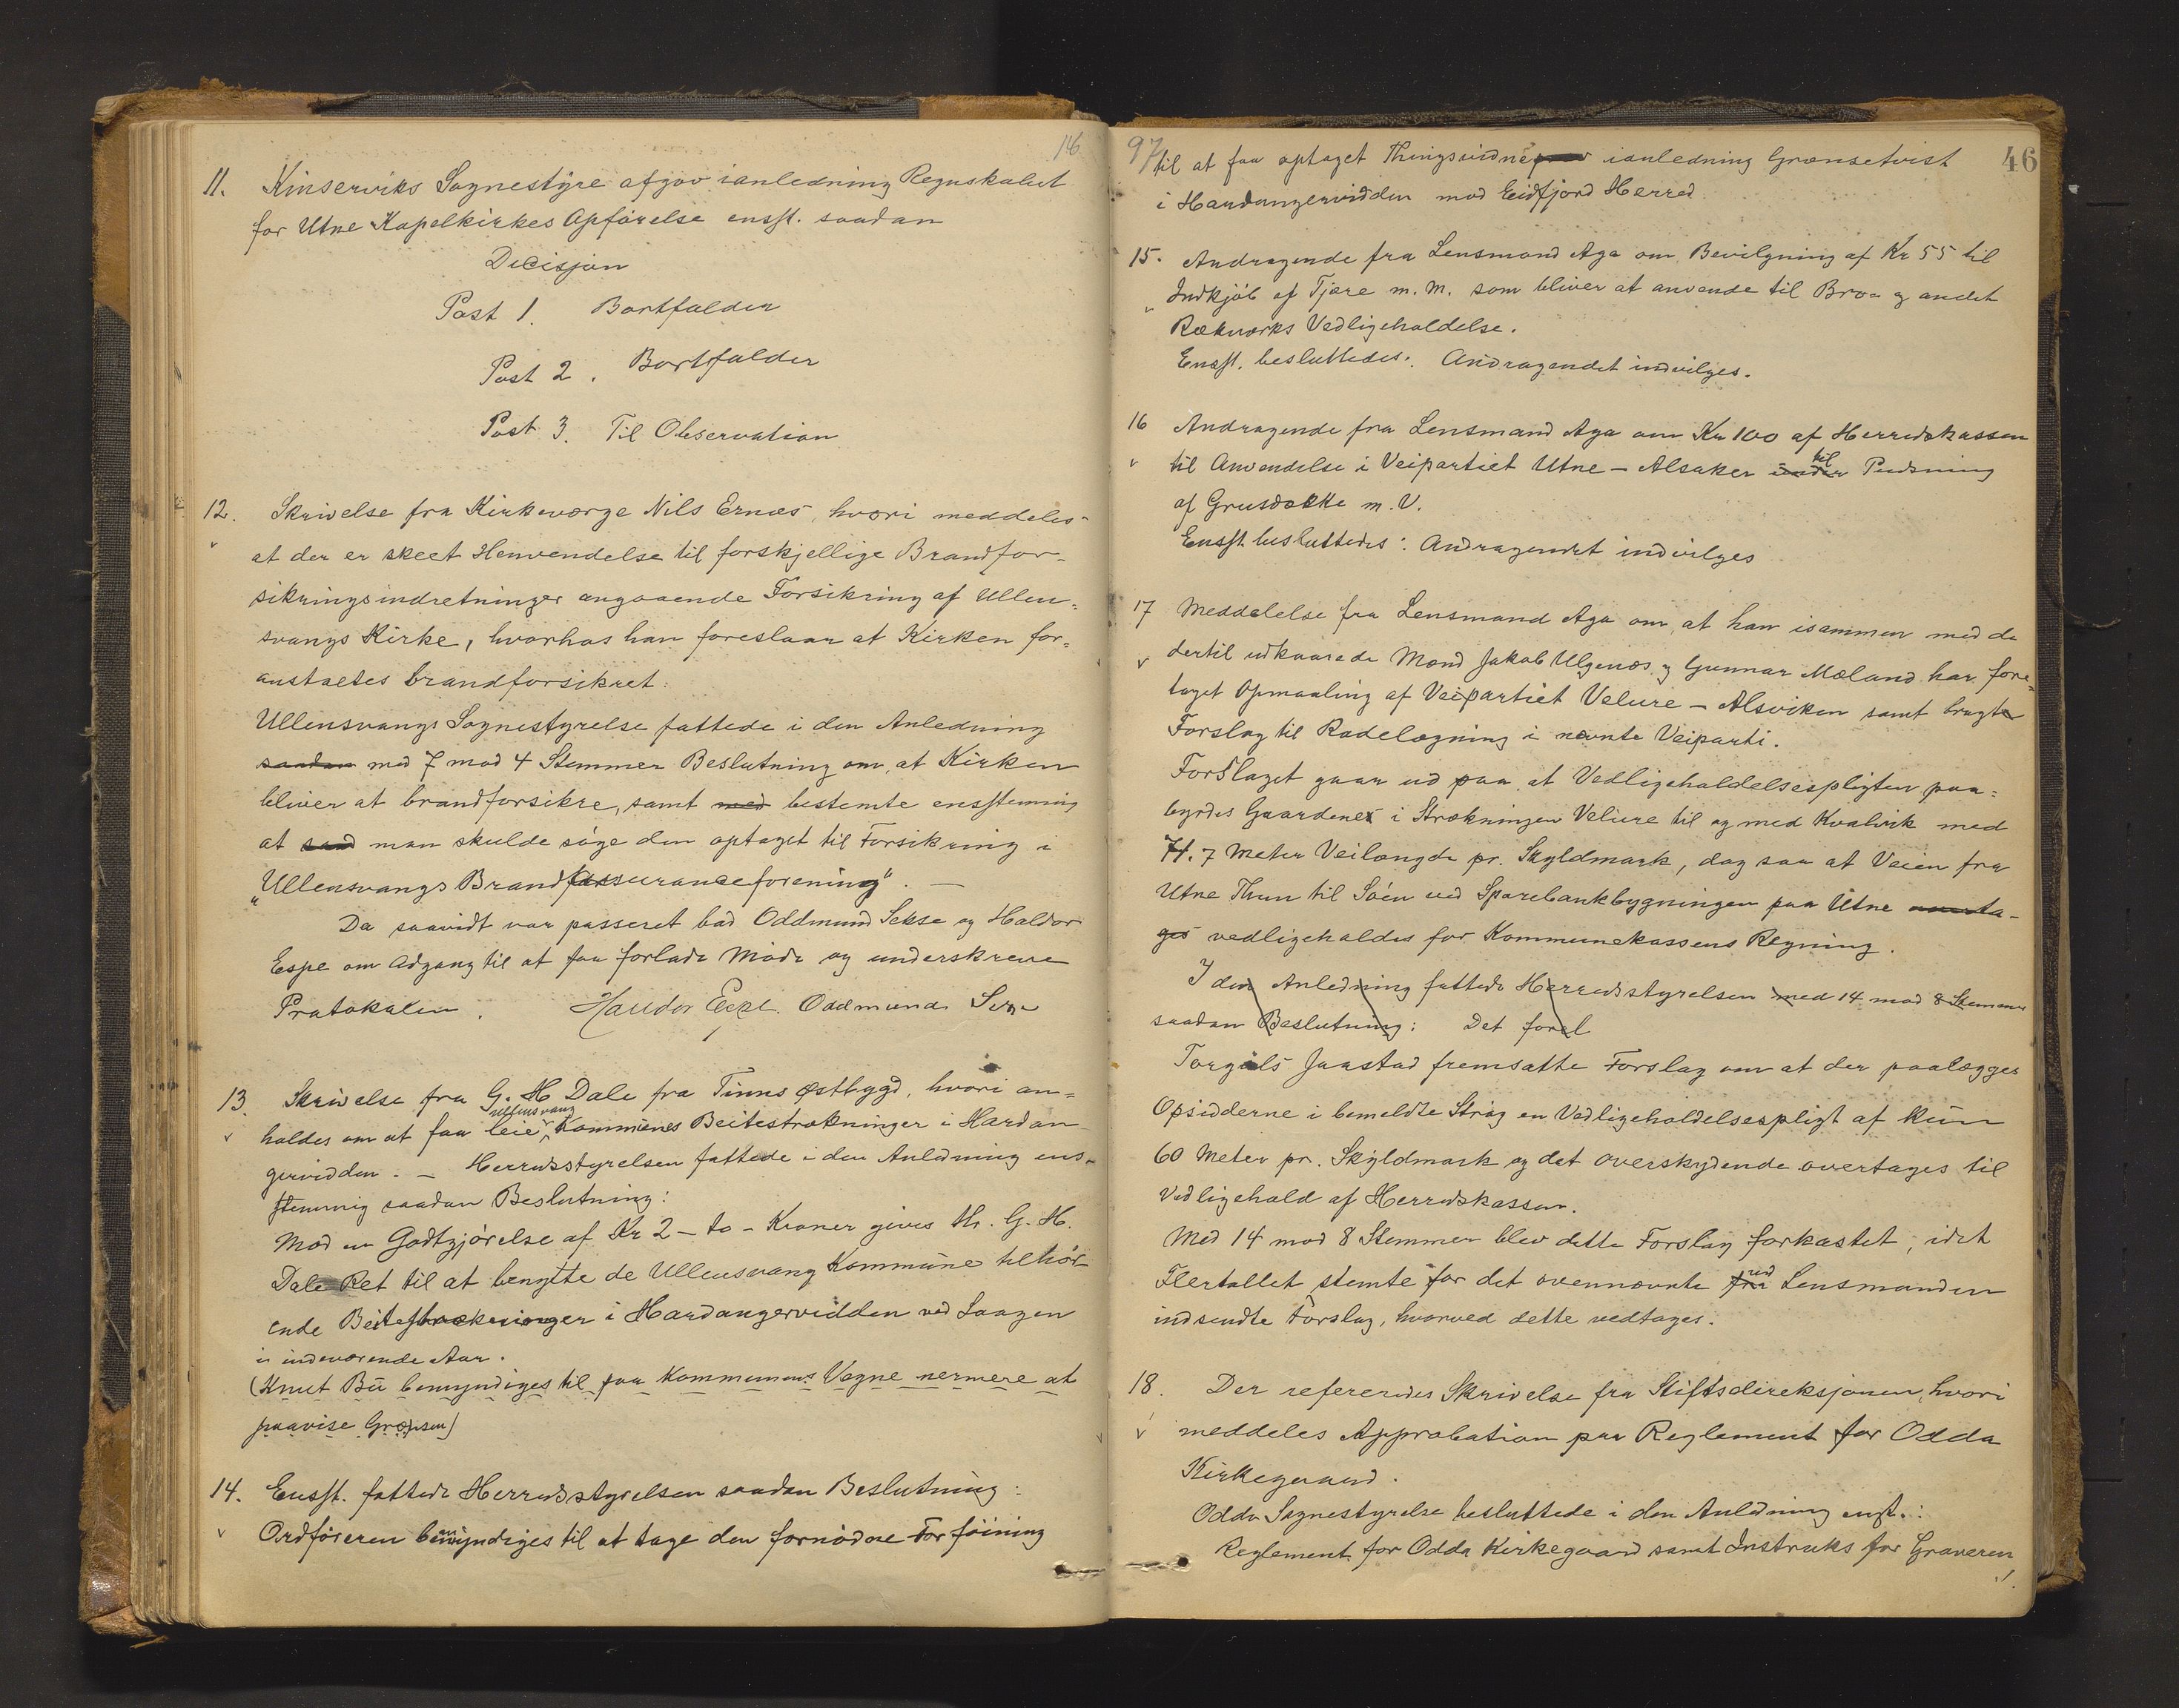 16
11. Kinserviks Sognestyre afgav ianledning Regnskabet
for Utne Kapelkirkes Opførelse enst. saadan
Decisjon
Post 1. Bortfalder
Post 2. Bortfalder
Post 3. Til Observation
12. Skrivelse fra Kirkeværge Nils Ernæs, hvori meddeles
at der er skeet Henvendelse til forskjellige Brandfor-
sikringsindretninger angaaende Forsikring af Ullen-
svangs Kirke, hvorhos han foreslaar at Kirken for-
anstaetes brandforsikret.
Ullensvangs Sognestyrelse fattede i den Anledning
saadan med 7 mod 4 Stemmer Beslutning om, at Kirken
bliver at brandforsikre, samt med bestemte ensstemmig
at man skulde søge den optaget til Forsikring i
"Ullensvangs Brandassuranceforening". —
Da saavidt var passeret bad Oddmund Sekse og Haldor
Espe om Adgang til at faa forlade Møde og underskreve
Protokolen. Haldor Espe. Oddmund
13. Skrivelse fra G. H Dale fra Tinns Østbygd, hvori an-
holdes om at faa leie Ullensvang Kommunes Beitestrækninger i Hardan-
gervidden. – Herredsstyrelsen fattede i den Anledning ens-
stemmig saadan Beslutning:
Mod en Godtgjørelse af Kr 2 – to – Kroner gives Hr. G. H.
Dale Ret til at benytte de Ullensvang Kommune tilhør-
ende Beitestrækninger i Hardangervidden ved Laagen
i indeværende Aar.
(Knut Bu bemyndiges til paa Kommunens Vegne nermere at
paavise Grænsen)
14. Ensst. fattede Herredsstyrelsen saadan Beslutning:
Ordføreren bemyndiges til at tage den fornødne Forføining
97 46
til at faa optaget Thingsvidne ianledning Grænsetvist
i Hardangervidden mod Eidfjord Herred
15. Andragende fra Lensmand Aga om Bevilgning af Kr 55 til
Indkjøb af Tjære m. m. som bliver at anvende til Broe og andet
Rækværks Vedligeholdelse.
Ensst. besluttedes: Andragendet indvilges.
16 Andragende fra Lensmand Aga om Kr 100 af Herredskassen
til Anvendelse i Veipartiet Utne – Alsaker under til Pudsning
af Grusdække m. V.
Ensst besluttedes: Andragendet indvilges
17 Meddelelse fra Lensmand Aga om, at han isammen med de
dertil udkaarede Mænd Jakob Ulgenæs og Gunnar Mæland har fore-
taget Opmaaling af Veipartiet Velure – Alsviken samt bragt
Forslag til Rodelægning i nævnte Veiparti.
Forslaget gaar ud paa, at Vedligeholdelsespligten paa-
byrdes Gaardene i Strækningen Velure til og med Kvalvik med
71.7 Meter Veilængde pr. Skyldmark, dog saa at Veien fra
Utne Thun til Søen ved Sparebankbygningen paa Utne
vedligeholdes for Kommunekassens Regning.
I den Anledning fattede Herredsstyrelsen med 14 mod 8 Stemmer
saadan Beslutning: Det forel
Torgils Jaastad fremsatte Forslag om at der paalægges
Opsidderne i bemeldte Strøg en Vedligeholdelsespligt af kun
60 Meter pr. Skyldmark og det overskydende overtages til
Vedligehold af Herredskassen.
Med 14 mod 8 Stemmer blev dette Forslag forkastet, idet
Flertallet stemte for det ovennævnte fra ved Lensmanden
indsendte Forslag, hvorved dette vedtages.
18. Der refereredes Skrivelse fra Stiftsdireksjonen, hvori
meddeles Approbation paa Reglement for Odda
Kirkegaard.
Odda Sognestyrelse besluttede i den Anledning enst.:
Reglement for Odda Kirkegaard samt Instruks for Graveren